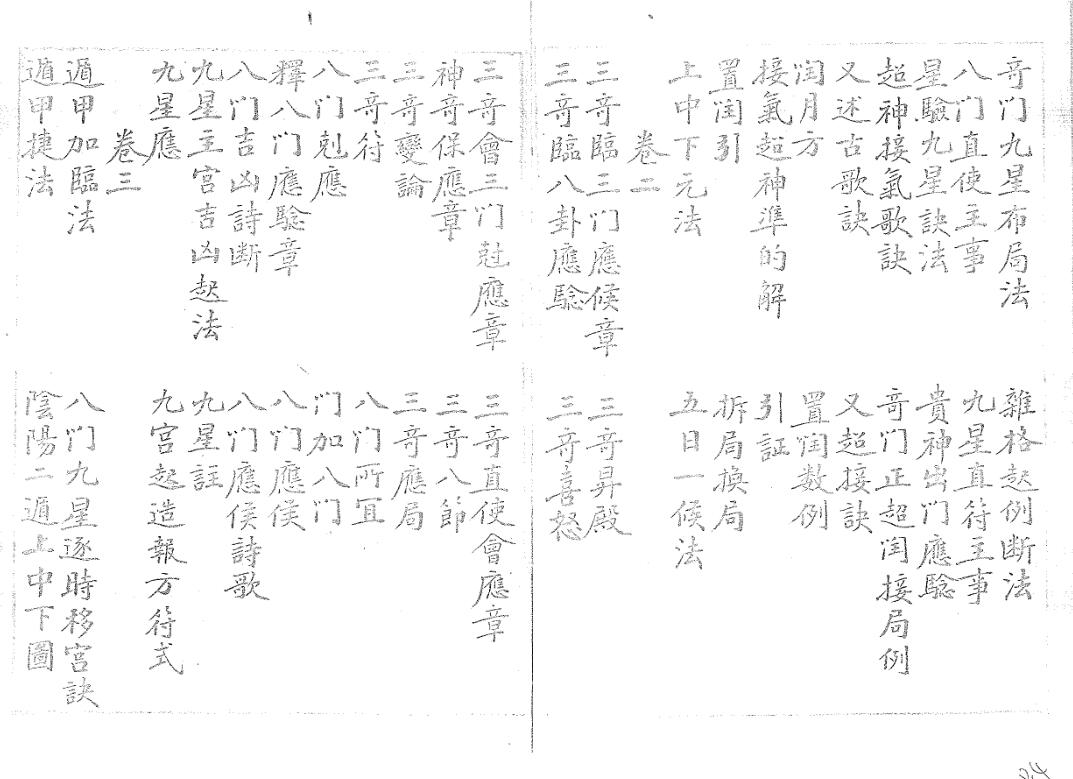 竒门九星布局法　雜格起例断法
八门直使主事　九星直符主事
星驗九星訣法　貴神出门應驗
超神接氣歌訣　竒门正超闰接局例
又述古歌訣　又超接訣
闰月方　置闰数例
接氣超神準的解　引証
置闰引　拆局換局
上中下元法　五日一候法
卷二
三竒臨三门應候章　三竒昇殿
三竒臨八卦應驗　三竒喜怒
三竒會三门尅應章　三竒直使會應章
神竒保應章　三竒八節
三竒變論　三竒應局
三竒符　八门所宜
八门尅應　门加八门
釋八门應驗章　八门應候
八门吉凶詩断　八门應侯詩歌
九星主宫吉凶起法　九星註
九星應　九宫起造報方符式
卷三
遁甲加臨法　八门九星逐時移宫訣
遁甲捷法　陰陽二遁上中下圖